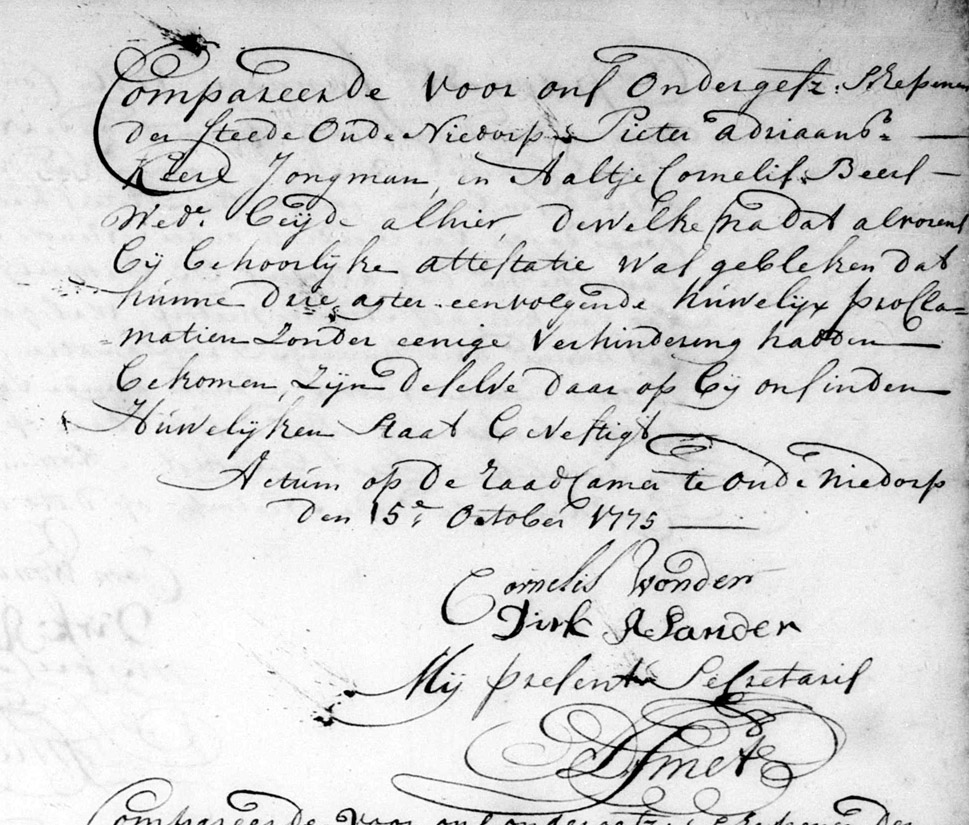 Compareerde voor ons Ondergetz: Schepenen
der Steede Oude Niedorp Pieter Adriaansz:
Keerl Jongman, en Aaltje Cornelis: Beers
Wed:e beijde alhier, dewelke na dat alvorens
bij behoorlijke attestatie was gebleken dat
hunne drie agter-eenvolgende huwelijx procla=
=matien zonder eenige verhindering hadden
bekomen, zijn deselve daar op bij ons in den
Huwelijken staat bevestigt
Actum op de Raadcamer te Oude Niedorp
den 15:e October 1775
Cornelis Wonder
Dirk Sander
Mij present Secretaris
D Smet
Compareerde voor ons ondergetz: Schepenen der